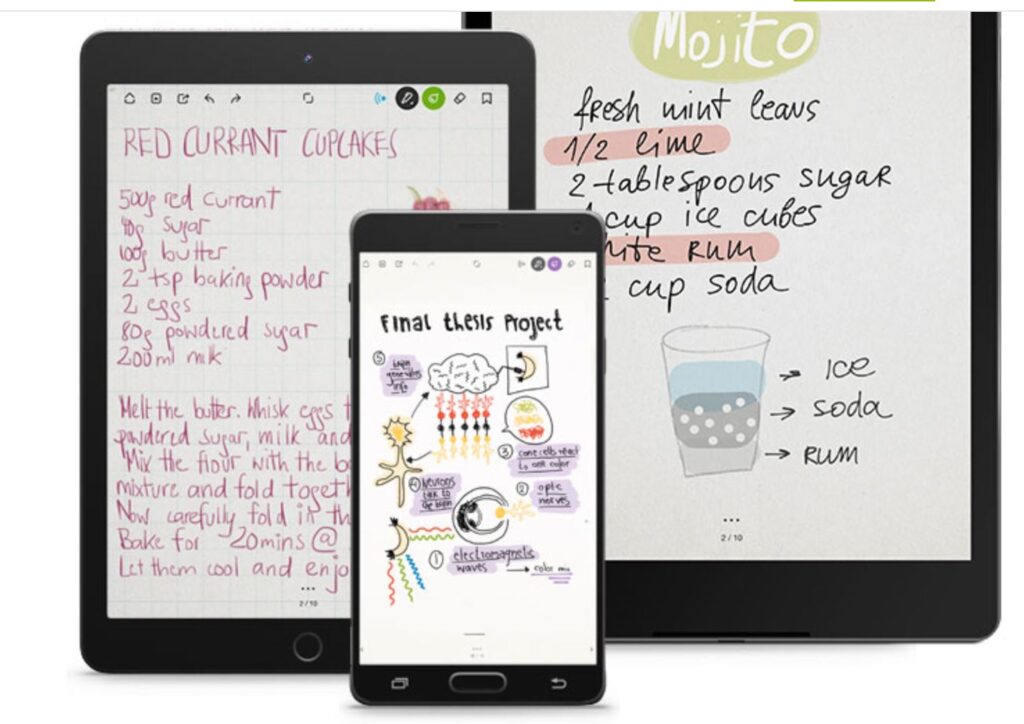 RED CURRANT CUPCAKES
500g red currant
sugar
100g butter
2 tsp baking powder
2 eggs
80g powdered sugar
200ml milk
Melt the butter. Whisk eggs
powdered sugar, milk and
Mix the flour with the
mixture and fold
Now carefully fold in
Bake for 20mins @
Let them cool and
2/10
Final thesis Project
5
brain
generates
info
3 cone cells react
to one color
4 Neurons
talk to
the brain
2 optic
nerves
1 electromagnetic
waves
color
Mojito
fresh mint leavs
1/2 lime
2 tablespoons sugar
cup ice cubes
rum
cup soda
ICE
soda
RUM
2/10